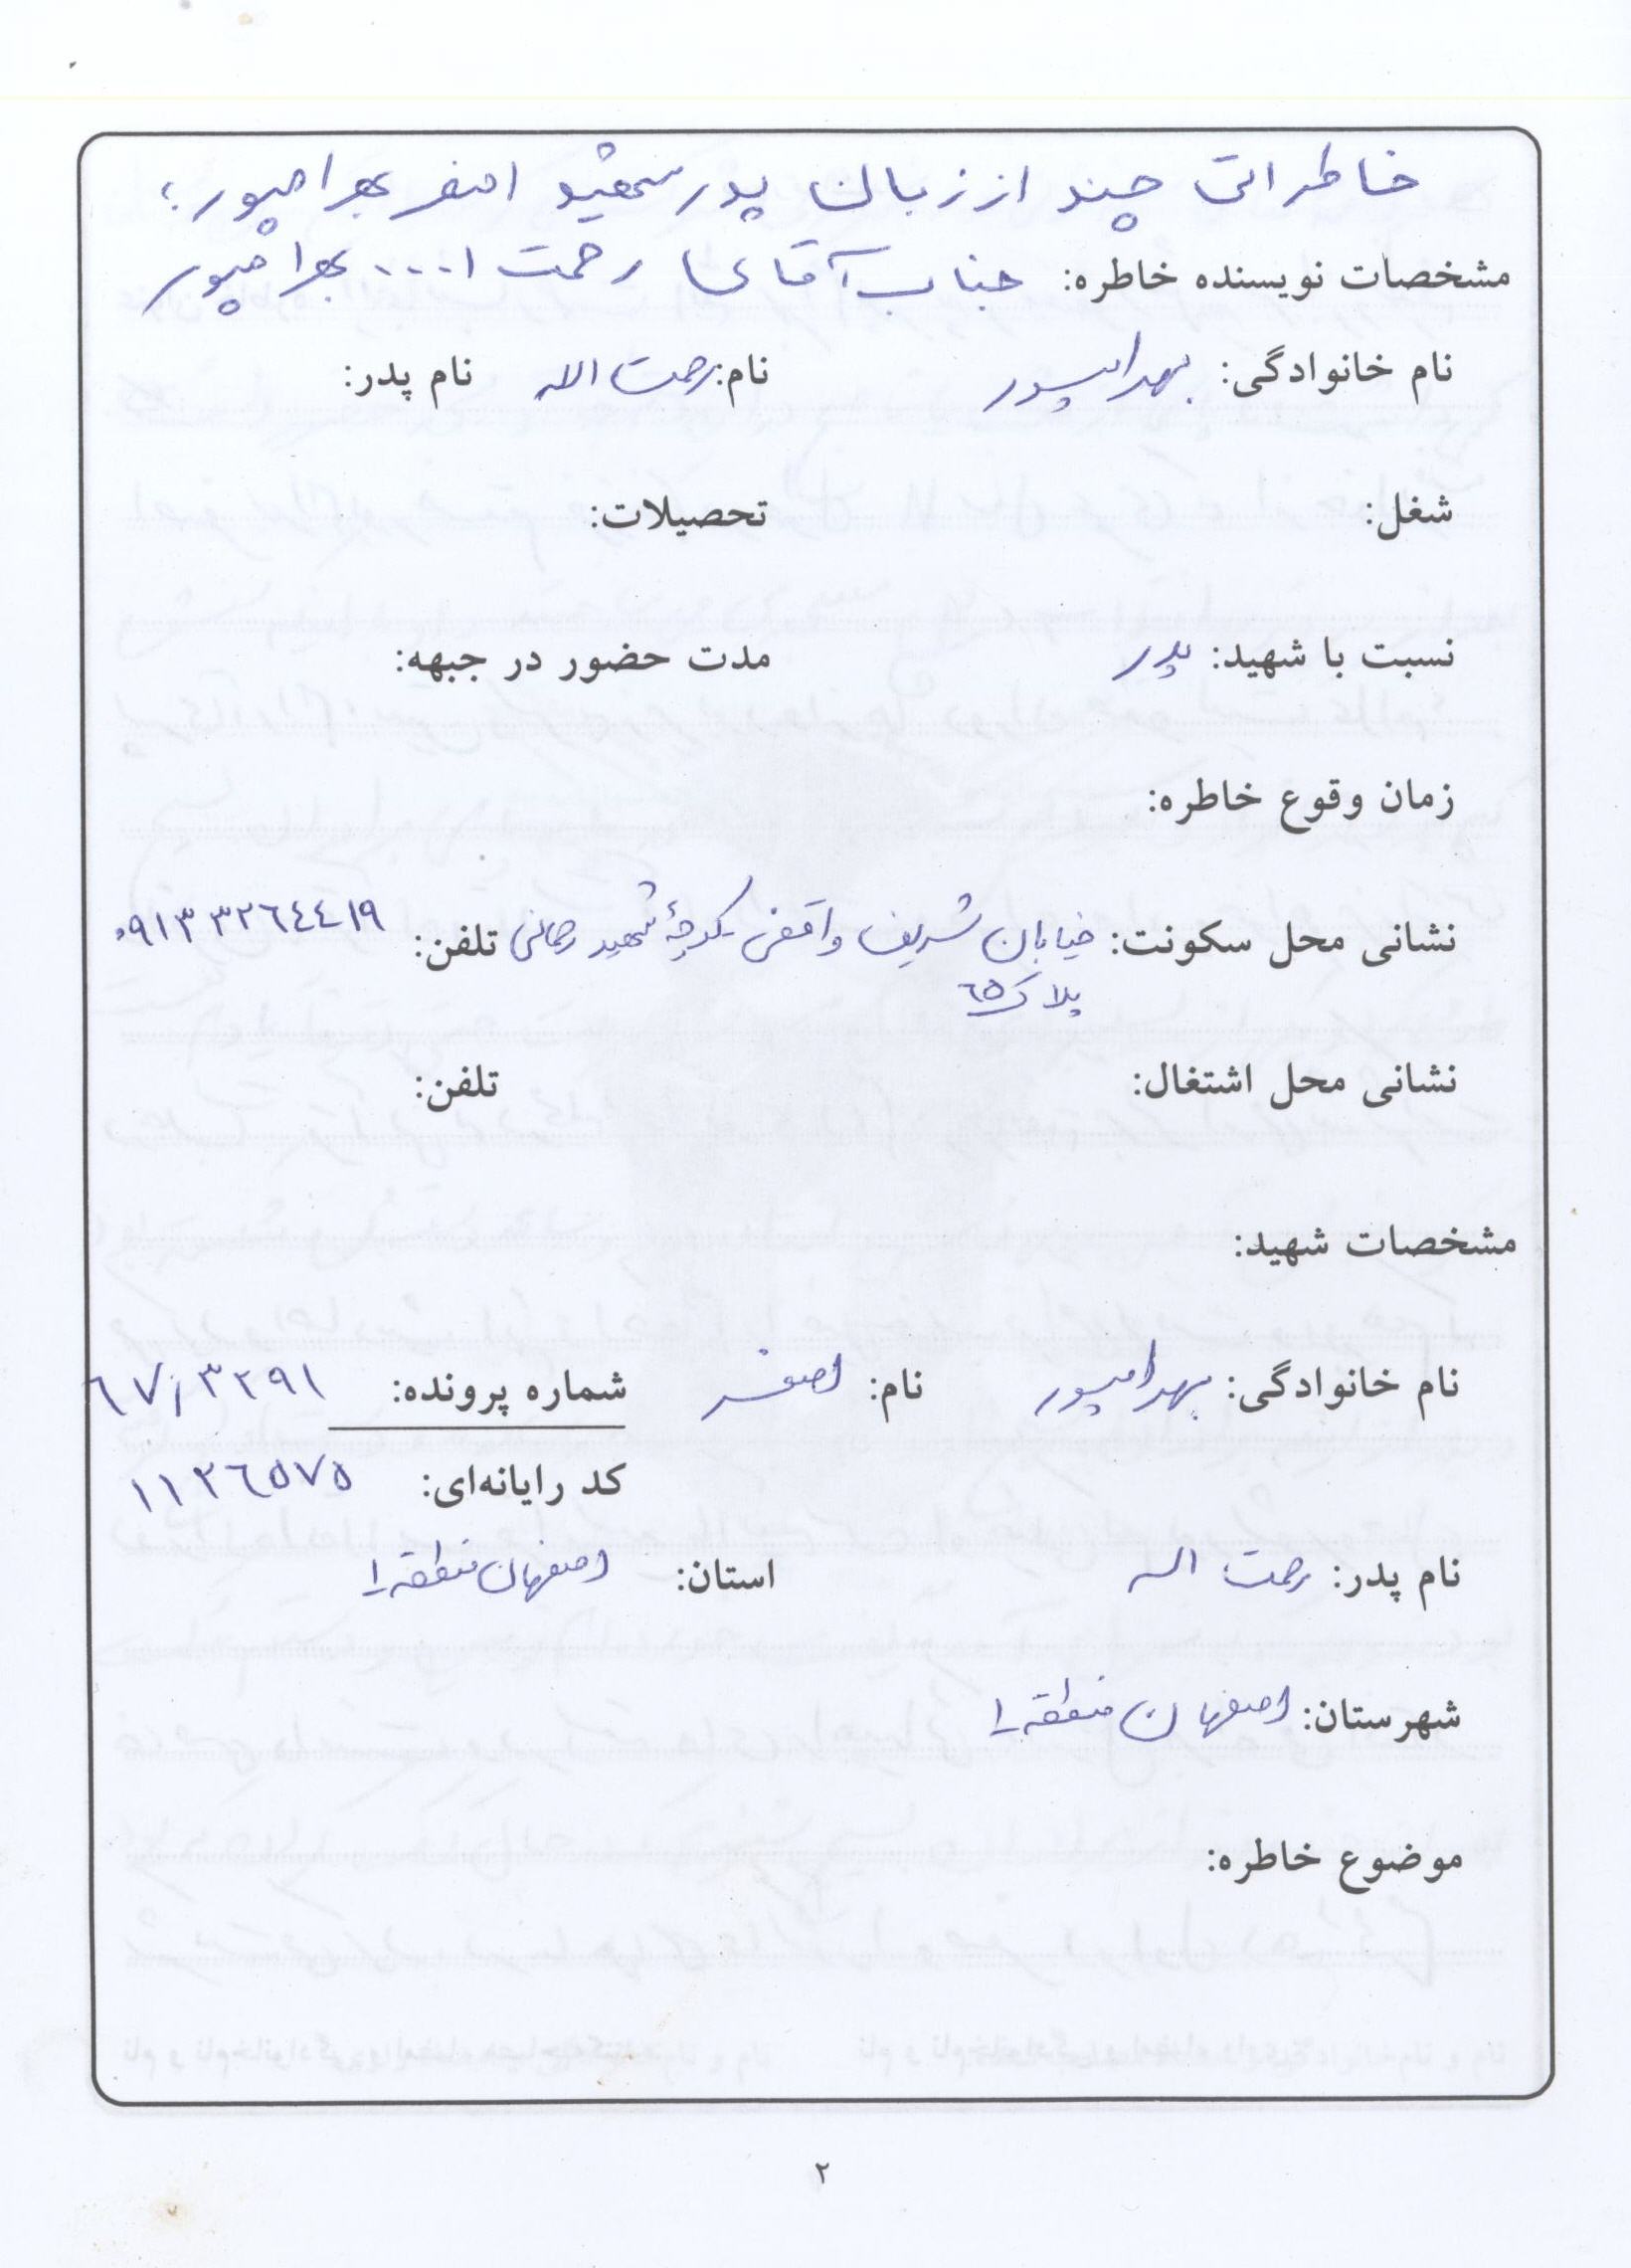 خاطراتی چند از زبان پدر شهید اصغر بهرامپور؛
مشخصات نویسنده خاطره: جناب آقای رحمت ا... بهرامپور
نام خانوادگی: بهرامپور نام: رحمت اله نام پدر:
شغل: تحصیلات:
نسبت با شهید: پدر مدت حضور در جبهه:
زمان وقوع خاطره:
نشانی محل سکونت: خیابان شریف واقفی کوچهٔ شهید تلفن: ۰۹۱۳۳۲۶۴۴۱۹
پلاک ۶۵
نشانی محل اشتغال: تلفن:
مشخصات شهید:
نام خانوادگی: بهرامپور نام: اصغر شماره پرونده: ۶۷/۳۲۹۱
کد رایانه‌ای: ۱۱۲۶۵۷۵
نام پدر: رحمت اله استان: اصفهان منطقه ۱
شهرستان: اصفهان منطقه ۱
موضوع خاطره:
۲